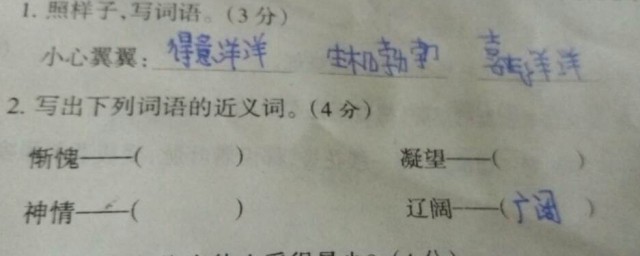 1. 照样子,写词语。(3分)
小心翼翼: 得意洋洋 生机勃勃 喜气洋洋
2. 写出下列词语的近义词。(4分)
惭愧——( ) 凝望——( )
神情——( ) 辽阔——(广阔)